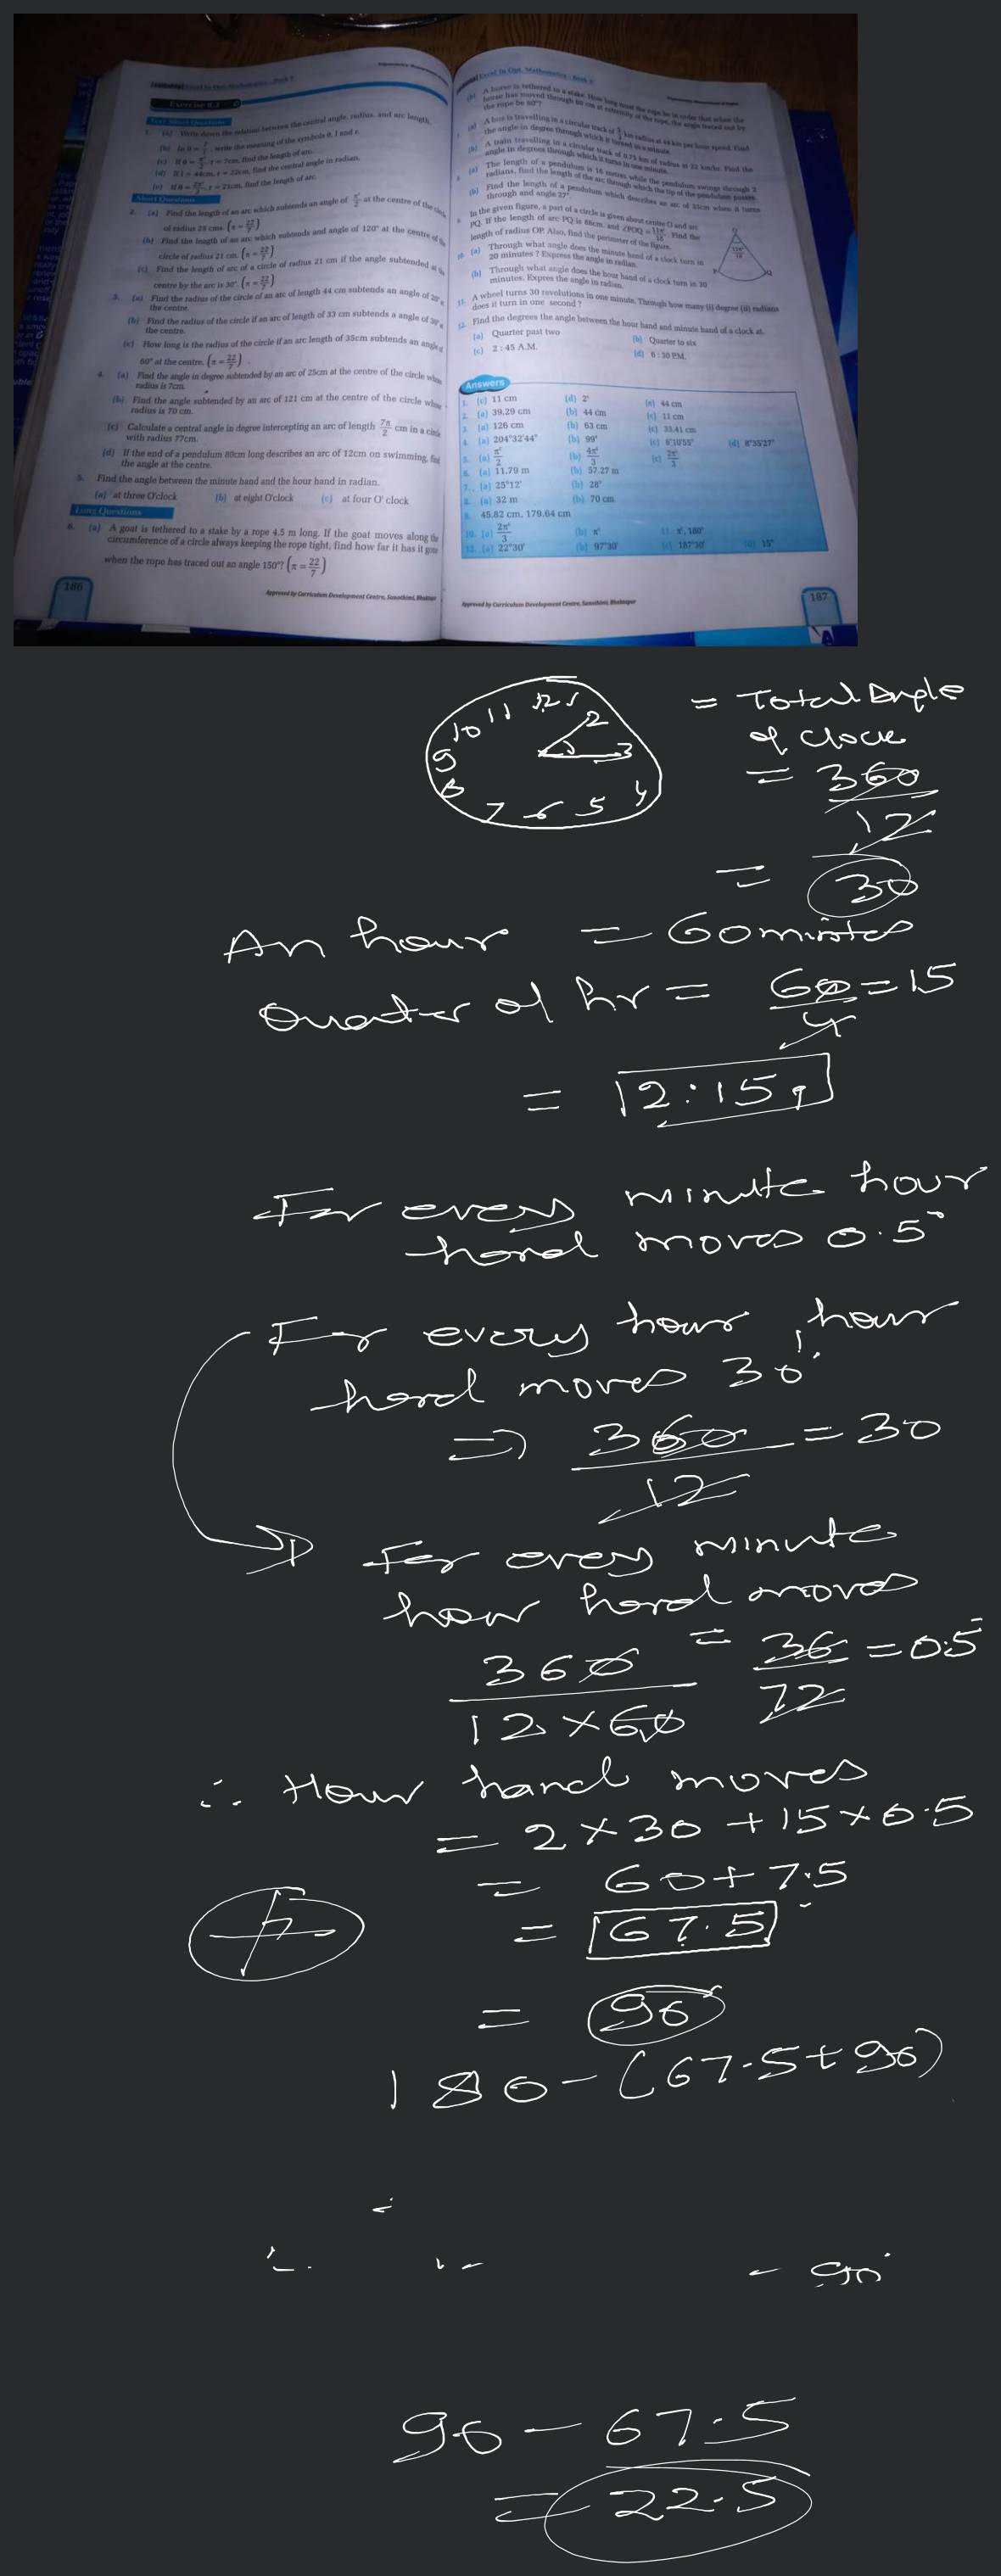 Exercise 8.3
Very Short Questions
1. (a) Write down the relation between the central angle, radius, and arc length.
(b) In θ = l/r, write the meaning of the symbols θ, l and r.
(c) If θ = , r = 7cm, find the length of arc.
(d) If l = 44cm, r = 22cm, find the central angle in radian.
(e) If θ = , r = 21cm, find the length of arc.
Short Questions
2. (a) Find the length of an arc which subtends an angle of at the centre of the
of radius 25 cms. (π = 22/7)
(b) Find the length of an arc which subtends and angle of 120° at the centre of the
circle of radius 21 cm. (π = 22/7)
(c) Find the length of arc of a circle of radius 21 cm if the angle subtended at the
centre by the arc is 30°. (π = 22/7)
3. (a) Find the radius of the circle of an arc of length 44 cm subtends an angle of
the centre.
(b) Find the radius of the circle if an arc of length of 33 cm subtends a angle of
the centre.
(c) How long is the radius of the circle if an arc length of 35cm subtends an angle
60° at the centre. (π = 22/7)
4. (a) Find the angle in degree subtended by an arc of 25cm at the centre of the circle
radius is 7cm.
(b) Find the angle subtended by an arc of 121 cm at the centre of the circle
radius is 70 cm.
(c) Calculate a central angle in degree intercepting an arc of length 7π/2 cm in a
with radius 77cm.
(d) If the end of a pendulum 80cm long describes an arc of 12cm on swimming,
the angle at the centre.
5. Find the angle between the minute hand and the hour hand in radian.
(a) at three O'clock (b) at eight O'clock (c) at four O' clock
Long Questions
6. (a) A goat is tethered to a stake by a rope 4.5 m long. If the goat moves along the
circumference of a circle always keeping the rope tight, find how far it has it gone
when the rope has traced out an angle 150°? (π = 22/7)
186
Approved by Curriculum Development Centre, Sanothimi, Bhaktapur
(b) A horse is tethered to a stake. How long must the rope be in order that when the
horse has moved through 60 cm at extremity of the rope, the angle traced out by
the rope be 60°?
7. (a) A bus is travelling in a circular track of km radius at 44 km per hour speed. Find
the angle in degree through which it turned in a minute.
(b) A train travelling in a circular track of 0.75 km of radius at 22 km/hr. Find the
angle in degrees through which it turns in one minute.
8. (a) The length of a pendulum is 16 meters while the pendulum swings through 2
radians, find the length of the arc through which the tip of the pendulum passes.
(b) Find the length of a pendulum which describes an arc of 33cm when it turns
through and angle 27°.
9. In the given figure, a part of a circle is given about centre O and arc
PQ. If the length of arc PQ is 88cm. and ∠POQ = , Find the
length of radius OP. Also, find the perimeter of the figure.
10. (a) Through what angle does the minute hand of a clock turn in
20 minutes ? Express the angle in radian.
(b) Through what angle does the hour hand of a clock turn in 30
minutes. Expres the angle in radian.
11. A wheel turns 30 revolutions in one minute. Through how many (i) degree (ii) radians
does it turn in one second ?
12. Find the degrees the angle between the hour hand and minute hand of a clock at.
(a) Quarter past two (b) Quarter to six
(c) 2 : 45 A.M. (d) 6 : 30 P.M.
Answers
1. (c) 11 cm (d) 2ᶜ (e) 44 cm
2. (a) 39.29 cm (b) 44 cm (c) 11 cm
3. (a) 126 cm (b) 63 cm (c) 33.41 cm
4. (a) 204°32'44" (b) 99° (c) 8°10'55" (d) 8°35'27"
5. (a) πᶜ/2 (b) 4πᶜ/3 (c) 2πᶜ/3
6. (a) 11.79 m (b) 57.27 m
7. (a) 25°12' (b) 28°
8. (a) 32 m (b) 70 cm
9. 45.82 cm, 179.64 cm
10. (a) 2πᶜ/3 (b) πᶜ 11. πᶜ, 180°
12. (a) 22°30' (b) 97°30' (c) 187°30' (d) 15°
Approved by Curriculum Development Centre, Sanothimi, Bhaktapur
187
12 1 2 3 4 5 6 7 8 9 10 11
= Total Angle
of clock
= 360/12
= 30
An hour = 60 mintes
Quater of hr = 60/4 = 15
= 2:15
For every minute hour
hand moves 0.5°
For every hour, hour
hand moves 30°
⇒ 360/12 = 30
For every minute
hour hand moves
360/12×60 = 36/72 = 0.5
∴ Hour hand moves
= 2×30+15×0.5
= 60+7.5
= 67.5
= 90°
180-(67.5+90)
- 90°
90-67.5
= 22.5